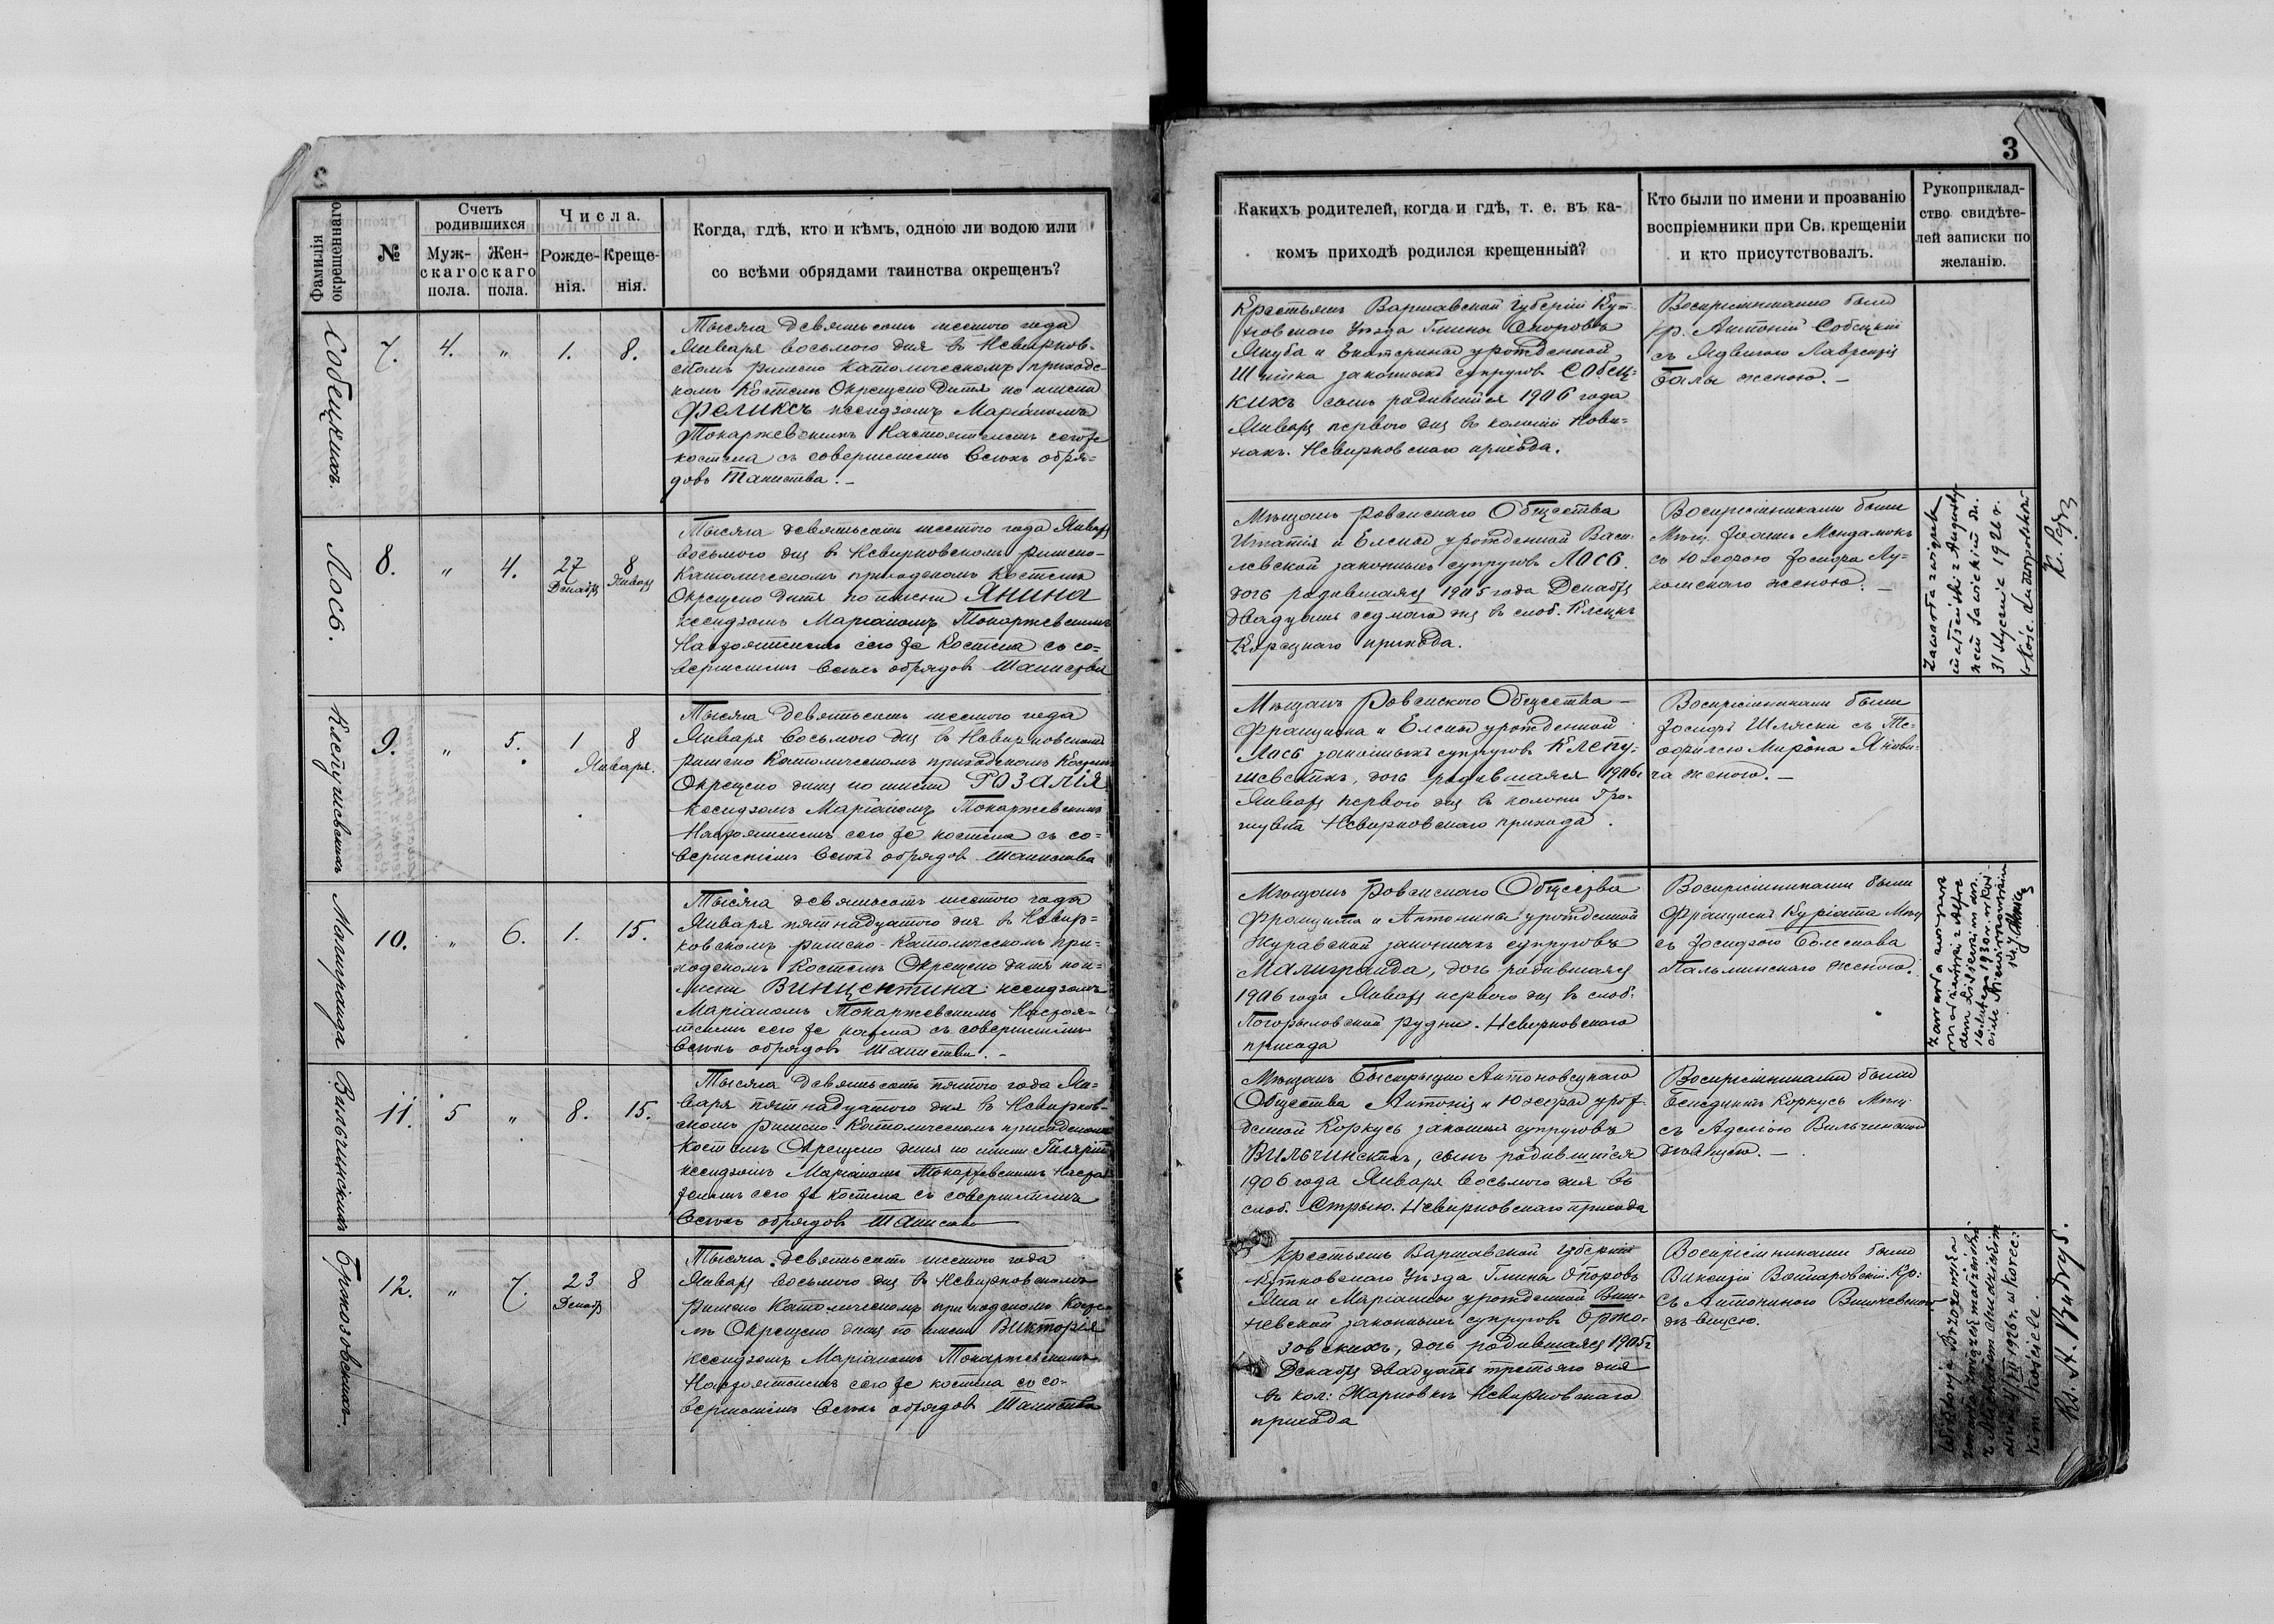 3
Фамилія окрещеннаго
№
Счетъ родившихся
Муж-скаго пола.
Жен-скаго пола.
Числа.
Рожде-нія.
Креще-нія.
Когда, гдѣ, кто и кѣмъ, одною ли водою или
со всѣми обрядами таинства окрещенъ?
Собецкихъ.
7.
4.
"
1.
8.
Тысяча девятьсотъ шестого года
Января восьмого дня въ Невирков-
скомъ римско католическомъ приходс-
комъ Костелѣ Окрещено Дитя по имени
Феликсъ ксендзомъ Маріаномъ
Токаржевскимъ Настоятелемъ сего же
костела съ совершеніемъ всѣхъ обря-
довъ Таинства.
Лось.
8.
"
4.
27
Декабря
8
Января
Тысяча девятьсотъ шестого года Января
восьмого дня въ Невирковскомъ римско-
Католическомъ приходскомъ Костелѣ
Окрещено дитя по имени Янина
ксендзомъ Маріаномъ Токаржевскимъ
Настоятелемъ сего же Костела съ со-
вершеніемъ всѣхъ обрядовъ Таинства
9.
"
5.
1
8
Января.
Тысяча девятьсотъ шестого года
Января восьмого дня въ Невирковскомъ
римско Католическомъ приходскомъ Костелѣ
Окрещено дитя по имени Розалія
ксендзомъ Маріаномъ Токаржевскимъ
Настоятелемъ сего же костела съ со-
вершеніемъ всѣхъ обрядовъ Таинства
Малигранда
10.
"
6.
1.
15.
Тысяча девятьсотъ шестого года
Января пятнадцатого дня въ Невир-
ковскомъ римско-Католическомъ при-
ходскомъ Костелѣ Окрещено дитя по и-
мени Винцентина ксендзомъ
Маріаномъ Токаржевскимъ Настоя-
телемъ сего же костела съ совершеніемъ
всѣхъ обрядовъ Таинства.
Вильчинскихъ
11.
5
"
8.
15.
Тысяча девятьсотъ пятого года Ян-
варя пятнадцатого дня въ Невирков-
скомъ римско-Католическомъ приходскомъ
Костелѣ Окрещено дитя по имени
ксендзомъ Маріаномъ Токаржевскимъ Настоя-
телемъ сего же костела съ совершеніемъ
всѣхъ обрядовъ Таинства
Бржозовскихъ.
12.
"
7.
23
Декабря
8
Тысяча девятьсотъ шестого года
Января восьмого дня въ Невирковскомъ
римско Католическомъ приходскомъ Косте-
лѣ Окрещено дитя по имени Викторія
ксендзомъ Маріаномъ Токаржевскимъ
Настоятелемъ сего же костела съ со-
вершеніемъ всѣхъ обрядовъ Таинства
3
Какихъ родителей, когда и гдѣ, т. е. въ ка-
комъ приходѣ родился крещенный?
Кто были по имени и прозванію
воспріемники при Св. крещеніи
и кто присутствовалъ.
Рукоприклад-
ство свидѣте-
лей записки по
желанію.
Крестьянъ Варшавской Губерніи Кут-
новскаго Уѣзда Гмины Опоровъ
Якуба и Екатерины урожденной
законныхъ супруговъ Собец-
кихъ сынъ родившійся 1906 года
Января первого дня въ колоніи Нови-
нахъ. Невирковскаго прихода.
Воспріемниками были
кр. Антоній Собецкій
съ Ядвигою Лаврентія
женою.
Мѣщанъ Ровенскаго Общества
Игнатія и Елены урожденной Васи-
левской законныхъ супруговъ Лось.
дочь родившаяся 1905 года Декабря
двадцать седьмого дня въ слоб.
Корецкаго прихода.
Воспріемниками были
Мѣщ.
съ Юзефою Іосифа
женою.
Zawarła związek
małżeński z Augusty-
nem Sawickim dn.
31 stycznia 1926 r.
w Kośc. Ludwipolskim
Мѣщанъ Ровенского Общества
Францишка и Елены урожденной
Лось законныхъ супруговъ Клепу-
шевскихъ, дочь родившаяся 1906 г
Января первого дня въ колоніи
Невирковскаго прихода.
Воспріемниками были
Іосифъ съ Те-
офилею Мирона Янови-
ча женою.
Мѣщанъ Ровенскаго Общества
Францишка и Антонины урожденной
Журавской законныхъ супруговъ
Малигранда, дочь родившаяся
1906 года Января первого дня въ слоб.
Погорыловской рудни. Невирковскаго
прихода
Воспріемниками были
Францискъ Куріата Мѣщ
съ Іозефою Болеслава
Пальминскаго женою.
16 lutego 1930 r.
Мѣщанъ
Общества Антонія и Юзефы урож-
денной Коркусь законныхъ супруговъ
Вильчинскихъ, сынъ родившійся
1906 года Января восьмого дня въ
слоб. Стрыю. Невирковскаго прихода
Воспріемниками были
Бенедиктъ Коркусь Мѣщ.
съ Аделіею Вильчинскою
дѣвицею.
Крестьянъ Варшавской Губерніи
Кутновскаго Уѣзда Гмины Опоровъ
Яна и Маріанны урожденной Виш-
невской законныхъ супруговъ Бржо-
зовскихъ, дочь родившаяся 1905 г
Декабря двадцать третьяго дня
въ кол: Жарновкѣ Невирковскаго
прихода
Воспріемниками были
Викентій Войнаровскій Кр:
съ Антониною Вишневскою
дѣвицею.
Wiktorja Brzozowska
zawarła związek małżeński
1926 r. w Korec-
kim kościele.
Ks. A. Kudryś.